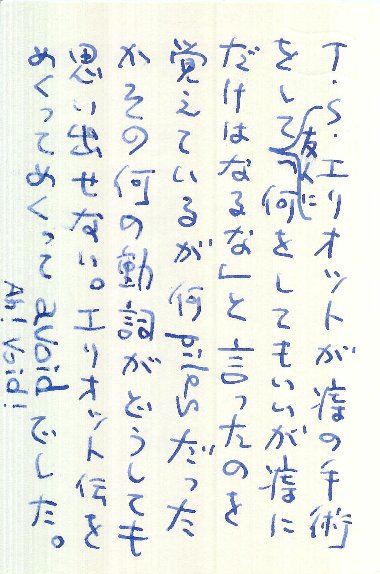 T.S.エリオットが痔の手術
をして友人に「何をしてもいいが痔に
だけはなるな」と言ったのを
覚えているが何だった
かその何の動詞がどうしても
思い出せない。エリオット伝を
めくってめくってavoidでした。
Ah! Void!